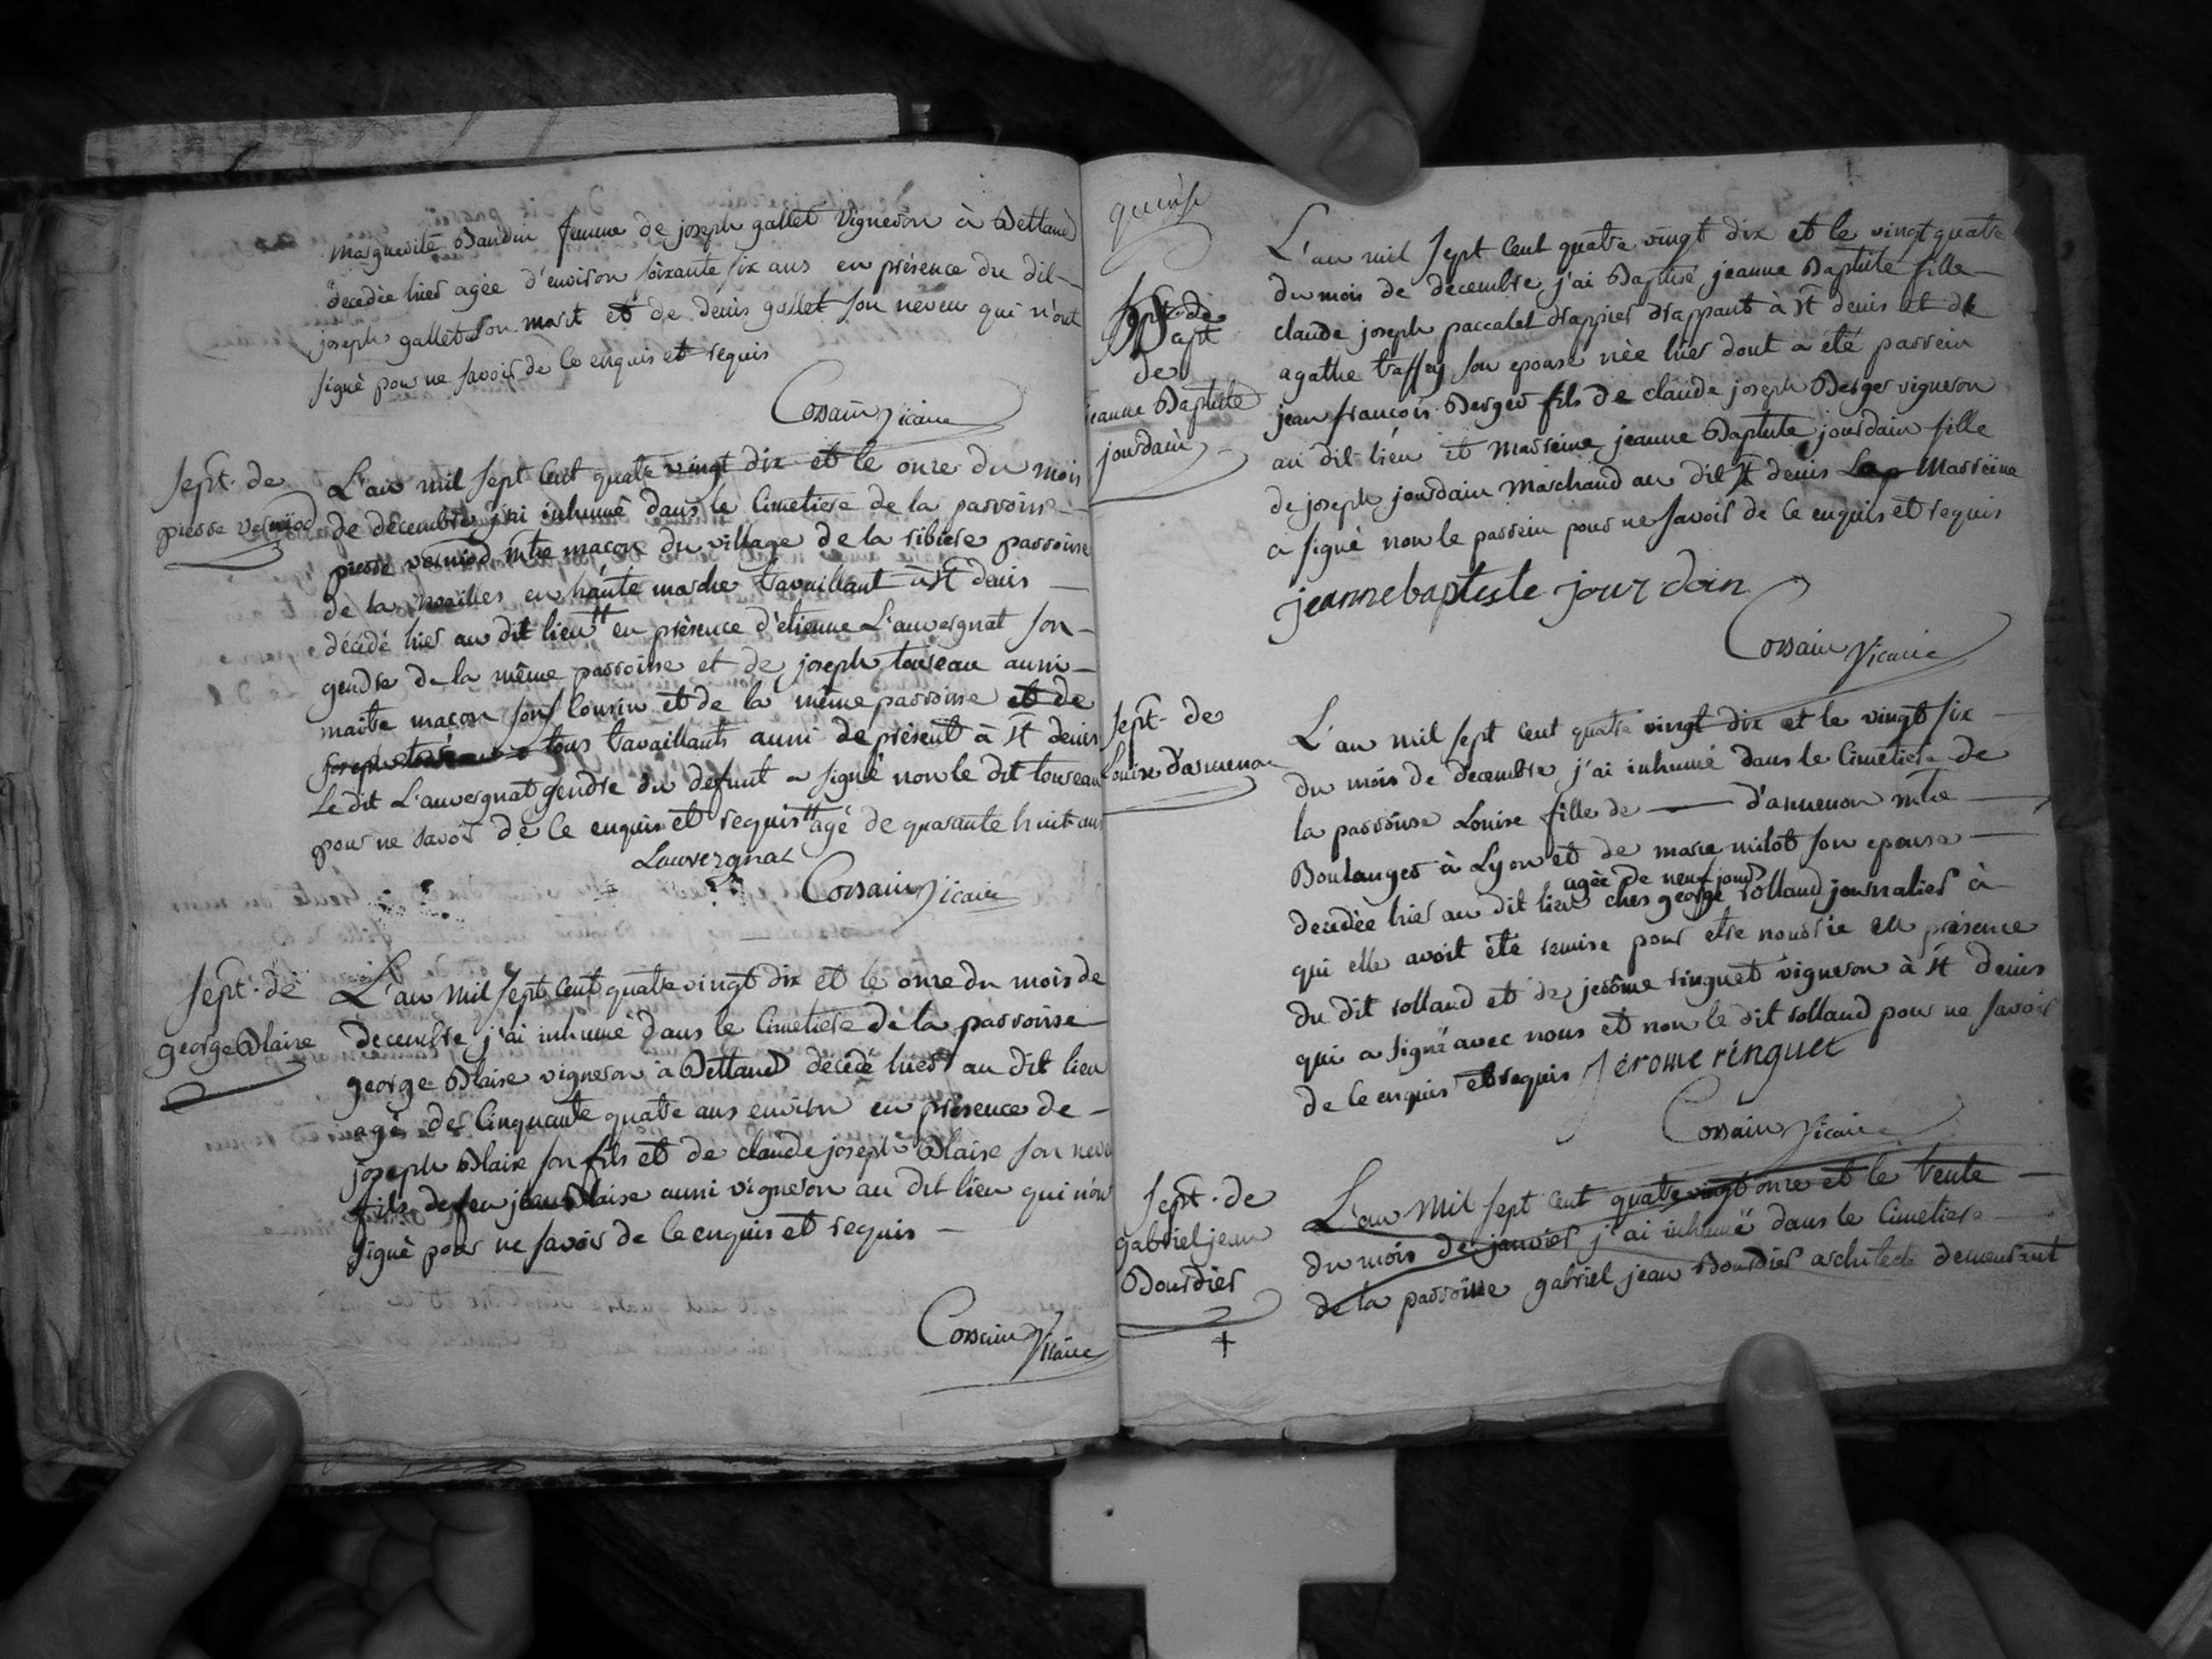 marguerite Baudin femme de joseph gallet vigneron à Bettand
decedée hier agée d'environ soixante six ans en présence du dit
joseph gallet son marit et de denis gallet son neveu qui n'ont
signé pour ne savoir de ce enquis et requis
Cossain Vicaire
sept. de
pierre verniod
L'an mil sept cent quatre vingt dix et le onze du mois
de decembre j'ai inhumé dans le cimetiere de la parroisse
pierre verniod mtre maçon du village de la ribiere parroisse
de la noailles en haute marche travaillant à st denis
décédé hier au dit lieu # en présence d'etienne L'auvergnat son
gendre de la même parroisse et de joseph touseau aussi
maitre maçon son cousin et de la même parroisse et de
joseph tous travaillants aussi de présent à st denis
Le dit L'auvergnat gendre du defunt a signé non le dit touseau
pour ne savoir de ce enquis et requis # agé de quarante huit ans
Lauvergnat
Cossain Vicaire
sept. de
george Blaise
L'an mil sept cent quatre vingt dix et le onze du mois de
decembre j'ai inhumé dans le cimetiere de la parroisse
george Blaise vigneron a Bettand decédé hier au dit lieu
agé de cinquante quatre ans environ en présence de
joseph Blaise son fils et de claude joseph Blaise son neveu
fils de feu jean Blaise aussi vigneron au dit lieu qui n'ont
signé pour ne savoir de ce enquis et requis
Cossain Vicaire
quinze
Bapt
de
jeanne Baptiste
jourdain
L'an mil sept cent quatre vingt dix et le vingt quatre
du mois de decembre j'ai Baptisé jeanne Baptiste fille
claude joseph paccalet drappier drappant à st denis et de
agathe traffey son epouse née hier dont a été parrein
jean francois Berger fils de claude joseph Berger vigneron
au dit lieu et marreine jeanne Baptiste jourdain fille
de joseph jourdain marchand au dit st denis La marreine
a signé non le parrein pour ne savoir de ce enquis et requis
jeannebaptiste jourdain
Cossain Vicaire
sept. de
Louise d'armenon
L'an mil sept cent quatre vingt dix et le vingt six
du mois de decembre j'ai inhumé dans le cimetiere de
la parroisse Louise fille de — d'armenon mtre
Boulanger à Lyon et de marie milot son epouse
agée de neuf jours
decedée hier au dit lieu ches george rolland journalier à
qui elle avoit été remise pour etre nourrie en présence
du dit rolland et de jerôme ringuet vigneron à st denis
qui a signé avec nous et non le dit rolland pour ne savoir
de ce enquis et requis Jerome ringuet
Cossain Vicaire
sept. de
gabriel jean
Bourdier
L'an mil sept cent quatre vingt onze et le trente
du mois de janvier j'ai inhumé dans le cimetiere
de la parroisse gabriel jean Bourdier architecte demeurant